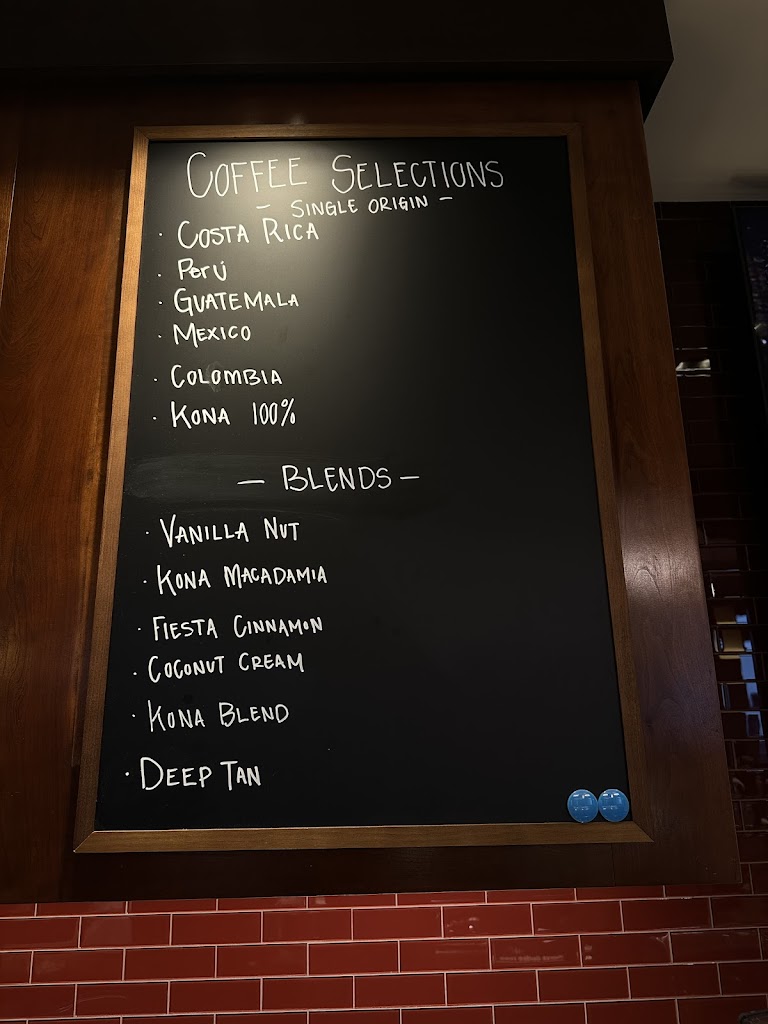 COFFEE SELECTIONS
- SINGLE ORIGIN -
· COSTA RICA
· PERÚ
· GUATEMALA
· MEXICO
· COLOMBIA
· KONA 100%
- BLENDS -
· VANILLA NUT
· KONA MACADAMIA
· FIESTA CINNAMON
· COCONUT CREAM
· KONA BLEND
· DEEP TAN